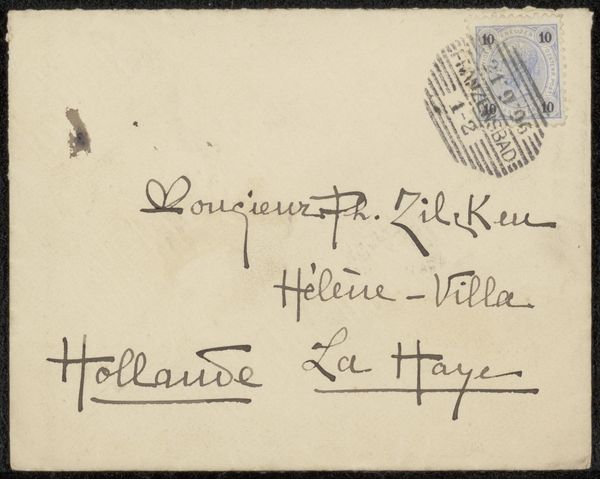 10 10
KREUZER
10 10
FRANZENSBAD
21 9 96
1-2
Monsieur Ph. Zilcken
Hélène-Villa
Hollande La Haye